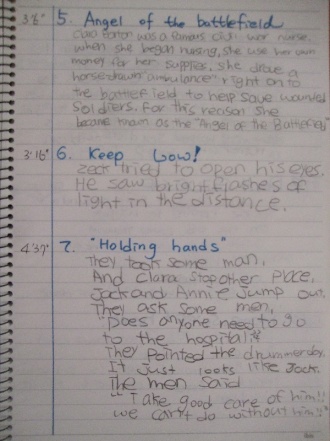 3'6" 5. Angel of the battlefield
Clara Barton was a famous civil war nurse.
when she began nursing, she use her own
money for her supplies. she drove a
horsedrawn "ambulance" right onto
the battlefield to help save wounded
soldiers. For this reason she
became known as the "Angel of the Battlefield"
3'16" 6. Keep Low!
Zeck tried to open his eyes.
He saw bright flashes of
light in the distance.
4'37" 7. "Holding hands"
They took some man,
And Clara Stop other Place,
Jack and Annie Jump out,
They ask some men,
"Does anyone need to go
to the hospital?"
They Pointed the drummerboy.
It Just looks like Jack.
The men said
"Take good care of him!!
we can't do without him!!"